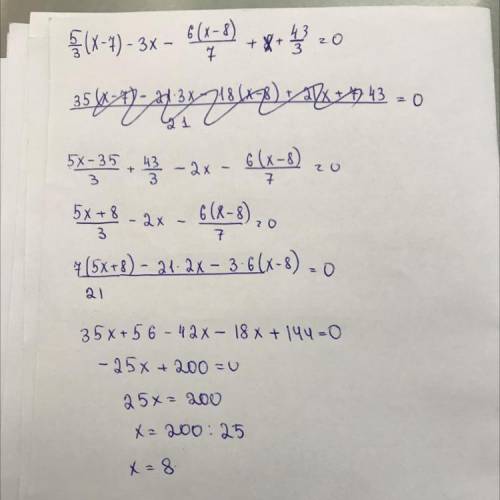 5/3 (x-7) - 3x - 6(x-8)/7 + x + 43/3 = 0
35(x-7) - 21·3x - 18(x-8) + 21x + 7·43 / 21 = 0
5x-35/3 + 43/3 - 2x - 6(x-8)/7 = 0
5x+8/3 - 2x - 6(x-8)/7 = 0
7(5x+8) - 21·2x - 3·6(x-8) / 21 = 0
35x+56-42x-18x+144=0
-25x+200=0
25x=200
x=200:25
x=8